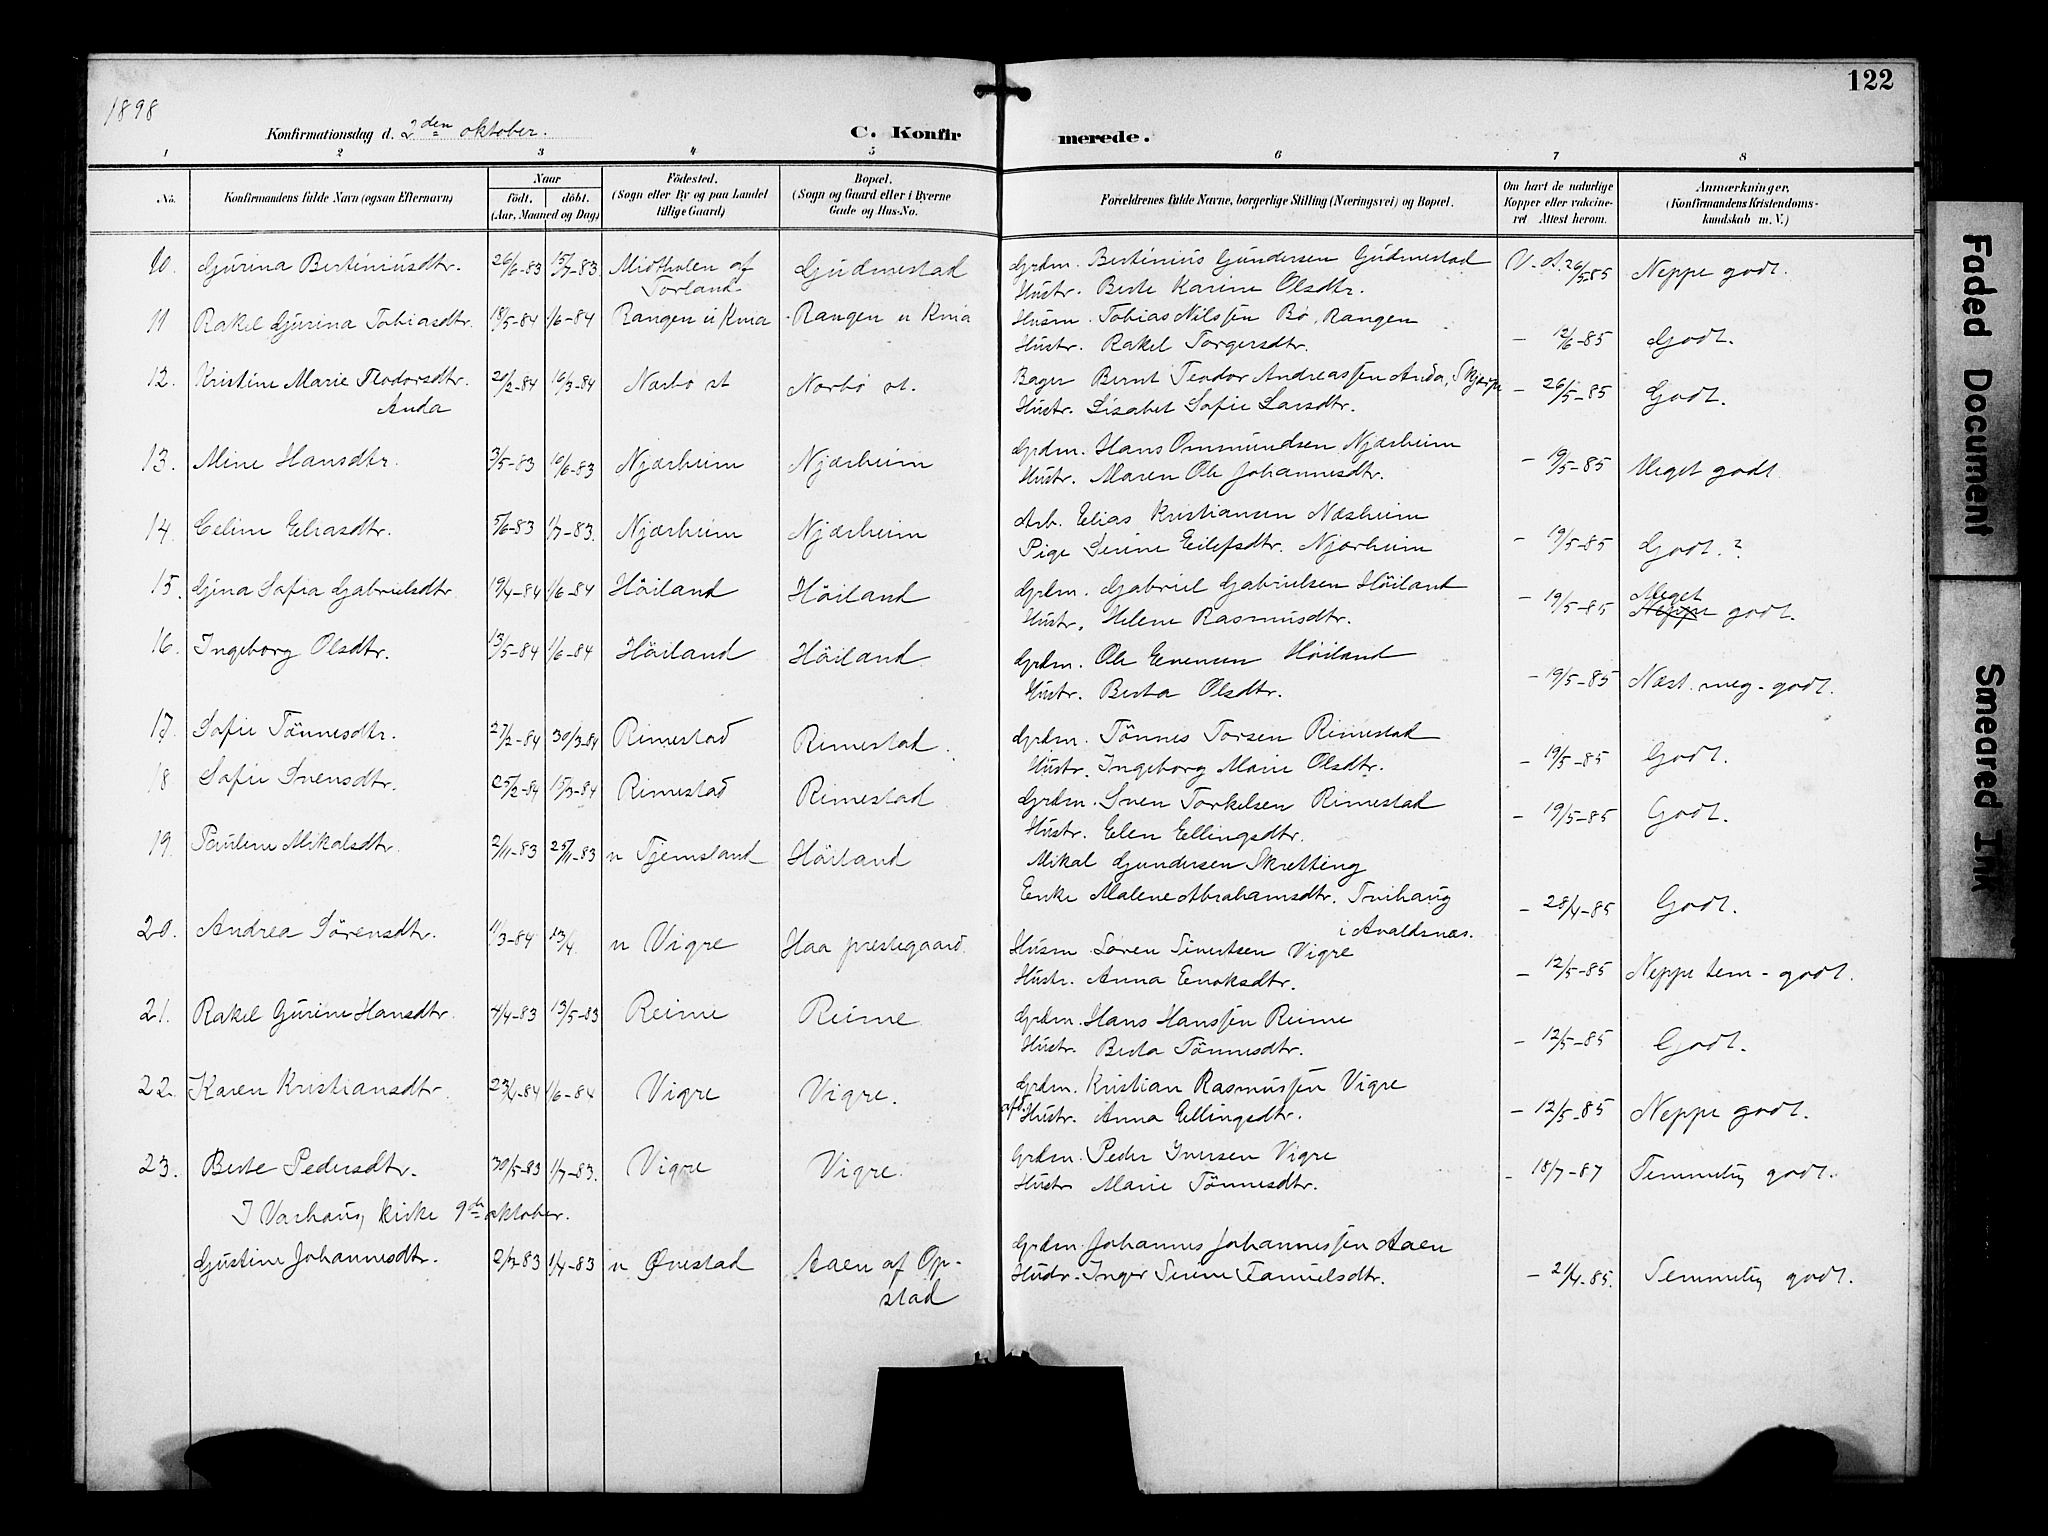 122
1898
Konfirmationsdag d. 2den oktober.
C. Konfirmerede.
1 2 3 4 5 6 7 8
No.
Konfirmandens fulde Navn (ogsaa Efternavn)
Naar
födt. döbt.
(Aar, Maaned og Dag)
Födested.
(Sogn eller By og paa Landet
tillige Gaard)
Bopæl.
(Sogn og Gaard eller i Byerne
Gade og Hus-No.
Forældrenes fulde Navne, borgerlige Stilling (Næringsvei) og Bopæl.
Om havt de naturlige
Kopper eller vakcine-
ret Attest herom.
Anmærkninger.
(Konfirmandens Kristendoms-
kundskab m. V.)
10. Gurina Bertiniusdtr. 26/6-83 15/7-83 Midtholen af Gudmestad Grdm. Bertinius Gundersen Gudmestad V. A. 26/5 85 Neppe godt.
Torland Hustr. Berte Karine Olsdtr.
11 Rakel Gurina Tobiasdtr. 18/5-84 1/6-84 Rangen u Kvia Rangen u Kvia Husm. Tobias Nilssen Bø, Rangen
Hustr. Rakel Torgersdtr. - 12/6-85 Godt.
12. Kristine Marie Teodorsdtr. 20/2-84 16/3-84 Nærbø st Nærbø st. Bager Bernt Teodor Andreassen Anda, - 26/5-85 Godt.
Anda Hustr. Lisabet Sofie Larsdtr.
13. Mine Hansdtr. 3/5-83 10/6-83 Njærheim Njærheim Grdm. Hans Ommundsen Njærheim - 19/5-85 Meget godt
Hustr. Maren Ole Johannesdtr.
14. Celine Eliasdtr. 5/6-83 1/7-83. Njærheim Njærheim Arb. Elias Kristiansen Næsheim
Pige Serine Eilefsdtr. Njærheim - 19/5-85 Godt.?
15. Gina Sofia Gabrielsdtr 19/4-84 1/6-84 Höiland Höiland Grdm. Gabriel Gabrielsen Höiland - 19/5-85 Meget
Hustr, Helene Rasmusdtr. Neppe godt.
16. Ingeborg Olsdtr. 13/5-84 1/6-84 Höiland Höiland Grdm. Ole Evensen Höiland
Hustr. Berta Olsdtr. - 19/5-85 Næst. meg-godt.
17. Sofie Tönnesdtr. 27/2-84 30/3-84 Rimestad Rimestad. Grdm. Tönnes Torsen Rimestad
Hustr. Ingeborg Marie Olsdtr. - 19/5-85 Godt.
18 Sofie Svensdtr. 25/2-84 15/3-84 Rimestad Rimestad Grdm. Sven Torkelsen Rimestad - 19/5-85 Godt.
Hustr. Elen Ellingsdtr.
19. Pauline Mikalsdtr. 2/11-83 25/11-83 u Tjemsland Höiland Mikal Gundersen Skretting
Enke Malene Abrahamsdtr. - 28/4-85 Godt.
i Avaldsnæs.
20. Andrea Sörensdtr. 11/3-84 13/4 u Vigre Haa prestegaard. Husm Sören Sivertsen Vigre
Hustr. Anna Enoksdtr. - 12/5-85 Neppe tem-godt.
21. Rakel Gurine Hansdtr. 4/4-83 13/5-83 Reime Reime Grdm. Hans Hanssen Reime
Hustr. Berta Tönnesdtr. - 12/5-85 Godt.
22. Karen Kristiansdtr 23/4-84 1/6-84 Vigre Vigre. Grdm. Kristian Rasmussen Vigre
afd. Hustr. Anna Ellingsdtr. - 12/5-85 Neppe godt.
23. Berte Pedersdtr. 30/5-83 1/7-83. Vigre Vigre. Grdm. Peder Iversen Vigre
Hustr Marie Tönnesdtr. - 18/7-87 Temmelig godt.
I Varhaug kirke 9de oktober.
Gustine Johannesdtr. 2/3-83 1/4-83 u Ovestad Aaen af Op- Grdm. Johannes Johannessen Aaen
stad Hustr. Inger Serine - 21/4-85. Temmelig godt.
Faded Document
Smeared Ink